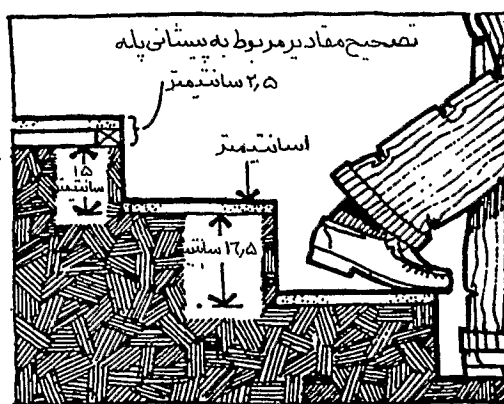 تصحیح مقادیر مربوط به پیشانی پله
۲٫۵ سانتیمتر
۱سانتیمتر
۱۵
سانتیمتر
۱۶٫۵ سانتی